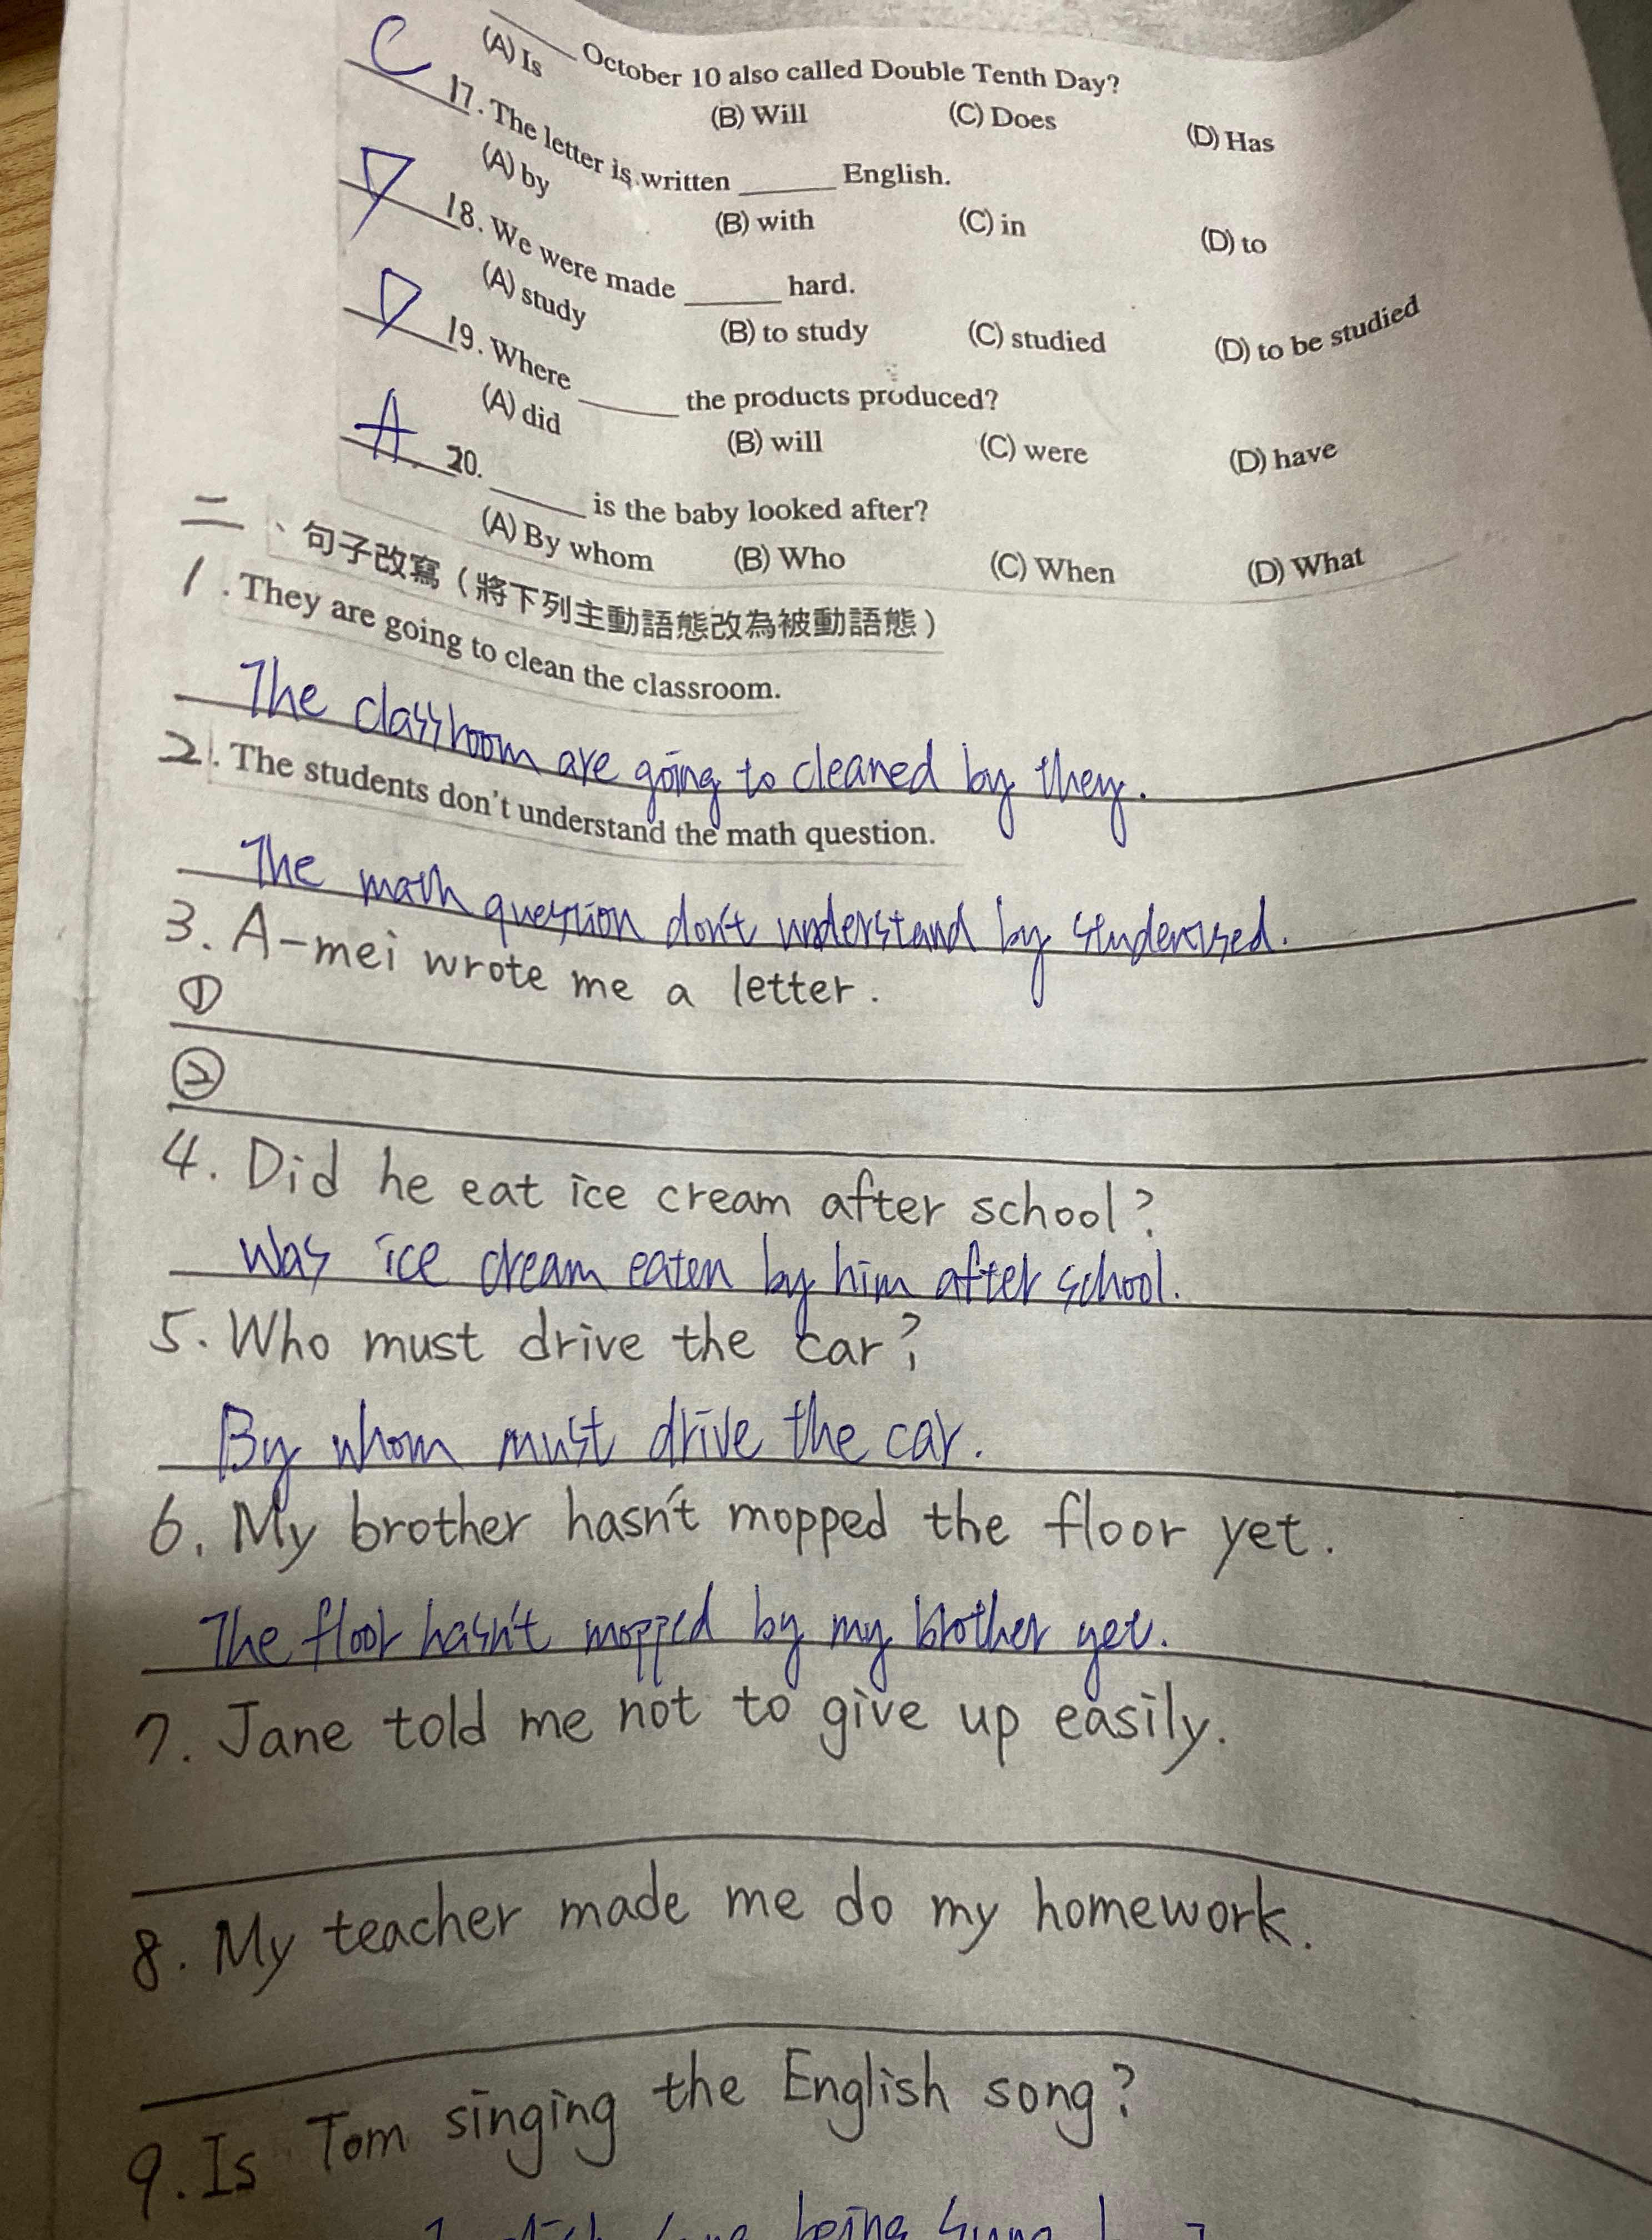 ____ October 10 also called Double Tenth Day?
(A) Is (B) Will (C) Does (D) Has
C 17. The letter is written ____ English.
(A) by (B) with (C) in (D) to
D 18. We were made ____ hard.
(A) study (B) to study (C) studied (D) to be studied
D 19. Where ____ the products produced?
(A) did (B) will (C) were (D) have
A 20. ____ is the baby looked after?
(A) By whom (B) Who (C) When (D) What
二、句子改寫（將下列主動語態改為被動語態）
1. They are going to clean the classroom.
The classroom are going to cleaned by they.
2. The students don't understand the math question.
The math question don't understand by
3. A-mei wrote me a letter.
①
②
4. Did he eat ice cream after school?
Was ice cream eaten by him after school.
5. Who must drive the car?
By whom must drive the car.
6. My brother hasn't mopped the floor yet.
The floor hasn't mopped by my brother yet.
7. Jane told me not to give up easily.
8. My teacher made me do my homework.
9. Is Tom singing the English song?
being sung